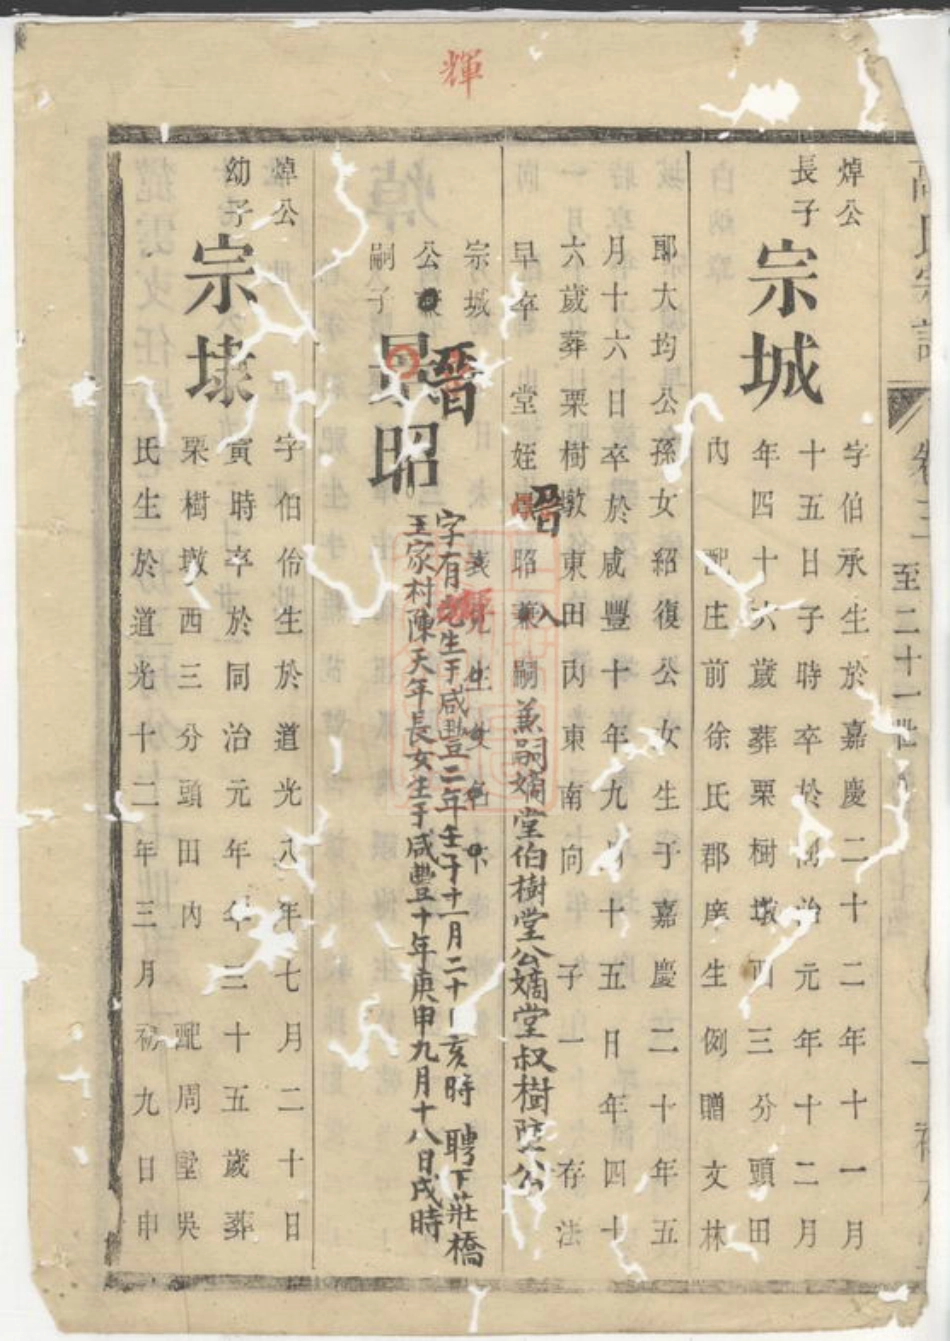 輝
氏宗
卷三
至二十一世
焯公
長子
宗城
字伯承生於嘉慶二十二年十一月
十五日子時卒於同治元年十二月
年四十六歲葬栗樹墩西三分頭田
內 配庄前徐氏郡庠生例贈文林
郎大均公孫女紹復公女生于嘉慶二十年五
月十六日卒於咸豐十年九月十五日年四十
六歲葬栗樹墩東田內東南向 子一 存法
早卒 堂姪晋昭兼嗣 入
兼嗣嫡堂伯樹堂公嫡堂叔樹堃公
宗城
公
嗣子
景昭
晋
字有 生于咸豐二年壬子十一月二十 亥時 聘下莊橋
王家村陳天年長女生于咸豐十年庚申九月十八日戌時
焯公
幼子
宗埭
字伯伶生於道光八年七月二十日
寅時卒於同治元年年三十五歲葬
栗樹墩西三分頭田內 配周墅吳
氏生於道光十二年三月初九日申